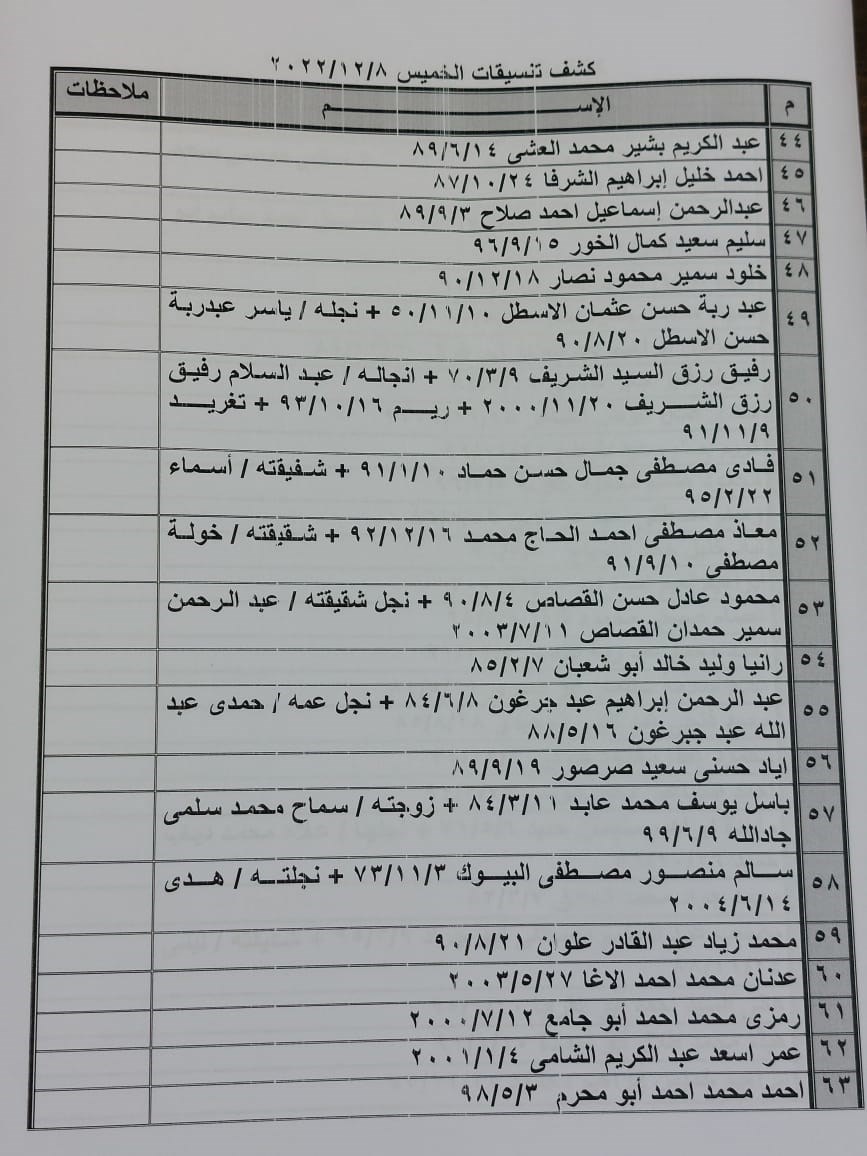 كشف تنسيقات الخميس ٢٠٢٢/١٢/٨
م الإســـــم ملاحظات
٤٤ عبد الكريم بشير محمد العشى ٨٩/٦/١٤
٤٥ احمد خليل إبراهيم الشرفا ٨٧/١٠/٢٤
٤٦ عبدالرحمن إسماعيل احمد صلاح ٨٩/٩/٣
٤٧ سليم سعيد كمال الخور ٩٦/٩/١٥
٤٨ خلود سمير محمود نصار ٩٠/١٢/١٨
٤٩ عبد ربة حسن عثمان الاسطل ٥٠/١١/١٠ + نجله / ياسر عبدربة
حسن الاسطل ٩٠/٨/٢٠
٥٠ رفيق رزق السيد الشريف ٧٠/٣/٩ + انجاله / عبد السلام رفيق
رزق الشريف ٢٠٠٠/١١/٢٠ + ريم ٩٣/١٠/١٦ + تغريد
٩١/١١/٩
٥١ فادى مصطفى جمال حسن حماد ٩١/١/١٠ + شقيقته / أسماء
٩٥/٢/٢٢
٥٢ معاذ مصطفى احمد الحاج محمد ٩٢/١٢/١٦ + شقيقته / خولة
مصطفى ٩١/٩/١٠
٥٣ محمود عادل حسن القصاص ٩٠/٨/٤ + نجل شقيقته / عبد الرحمن
سمير حمدان القصاص ٢٠٠٣/٧/١١
٥٤ رانيا وليد خالد أبو شعبان ٨٥/٢/٧
٥٥ عبد الرحمن إبراهيم عبد جرغون ٨٤/٦/٨ + نجل عمه / حمدى عبد
الله عبد جبرغون ٨٨/٥/١٦
٥٦ اياد حسنى سعيد صرصور ٨٩/٩/١٩
٥٧ باسل يوسف محمد عابد ٨٤/٣/١١ + زوجته / سماح محمد سلمى
جادالله ٩٩/٦/٩
٥٨ سالم منصور مصطفى البيوك ٧٣/١١/٣ + نجلته / هدى
٢٠٠٤/٦/١٤
٥٩ محمد زياد عبد القادر علوان ٩٠/٨/٢١
٦٠ عدنان محمد احمد الاغا ٢٠٠٣/٥/٢٧
٦١ رمزى محمد احمد أبو جامع ٢٠٠٠/٧/١٢
٦٢ عمر اسعد عبد الكريم الشامى ٢٠٠١/١/٤
٦٣ احمد محمد احمد أبو محرم ٩٨/٥/٣